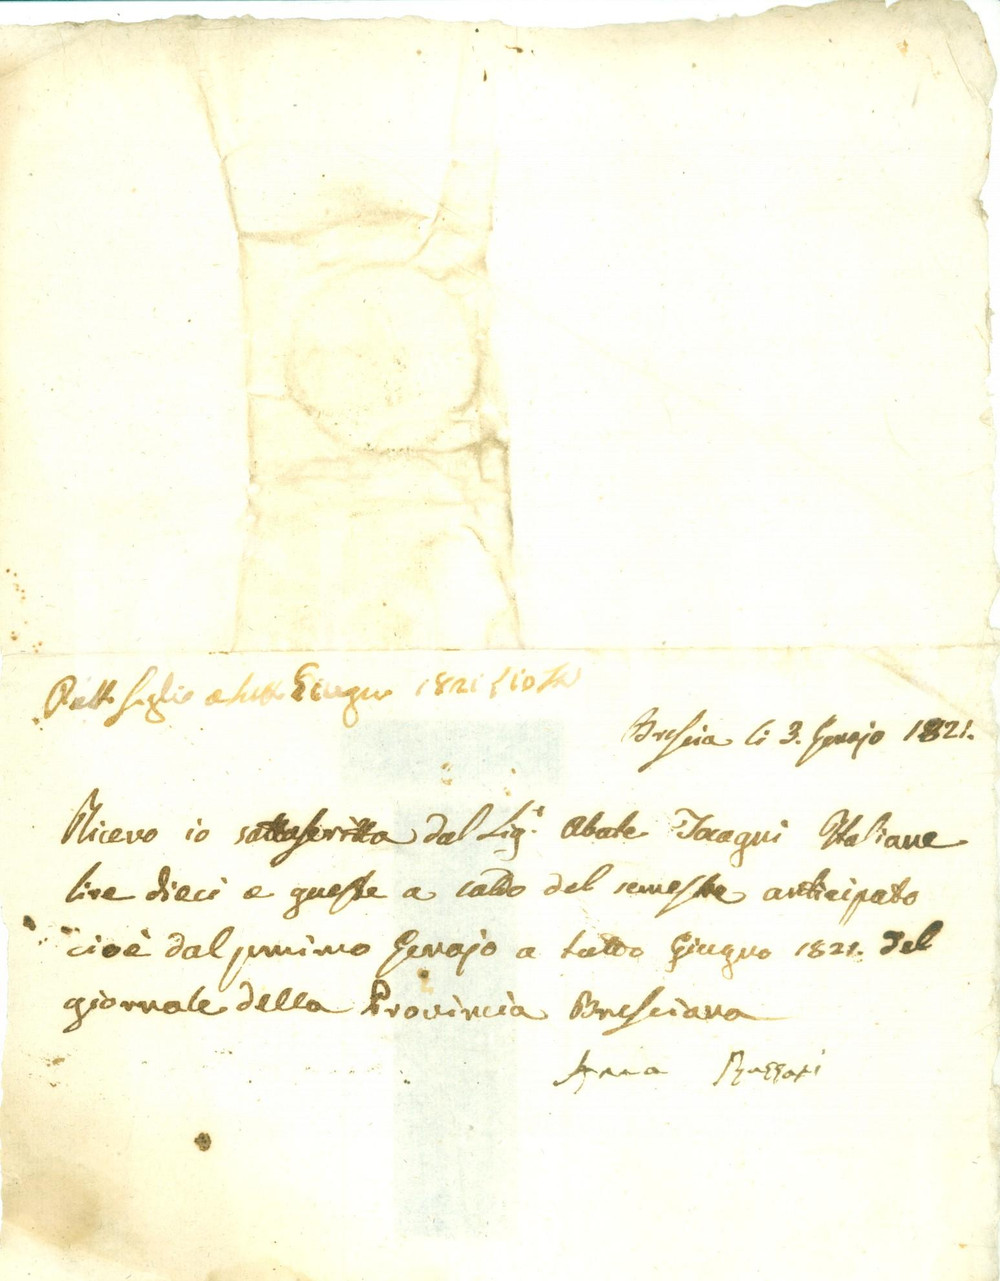 Giugno 1821
Brescia li 3. Genajo 1821.
Ricevo io sottoscritta dal Sig.r Abate Italiane
lire dieci e queste a saldo del semestre anticipato
cioè dal primo Genajo a tutto Giugno 1821. del
giornale della Provincia Bresciana
Anna